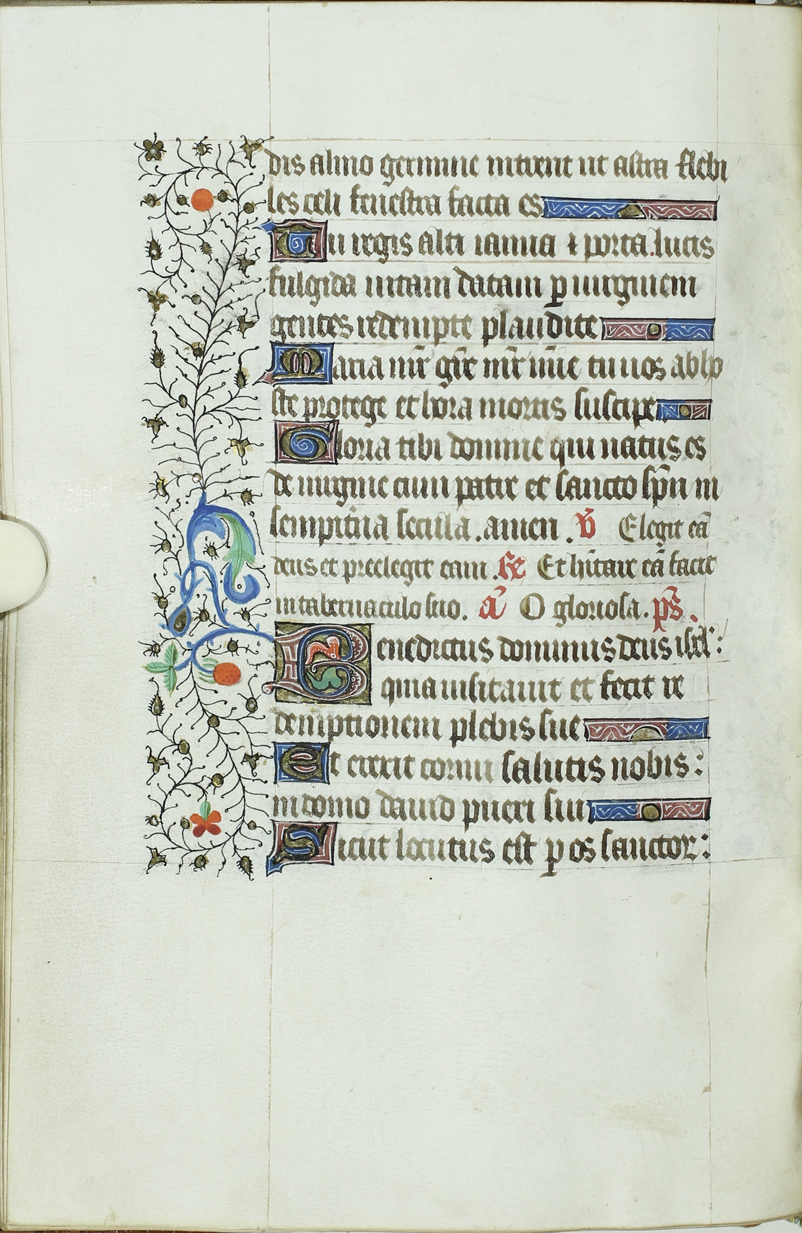 dis almo germine intrent ut astra flebi
les celi fenestra facta es
Tu regis alti ianua ⁊ porta lucis
fulgida uitam datam ꝑ uirginem
gentes redempte plaudite
Maria mr̄ grē mr̄ mīe tu nos ab ho
ste protege et hora mortis suscipe
Gloria tibi domine qui natus es
de uirgine cum patre et sancto spū in
sempit̄na secula. amen. v̄ Elegit eā
deus et preelegit eam. R̄ Et hītare eā facit
in tabernaculo suo. ā O gloriosa. ps̄.
Benedictus dominus deus isr̄l:
quia uisitauit et fecit re
demptionem plebis sue
Et erexit cornu salutis nobis:
in domo dauid pueri sui
Sicut locutus est ꝑ os sanctoꝝ: